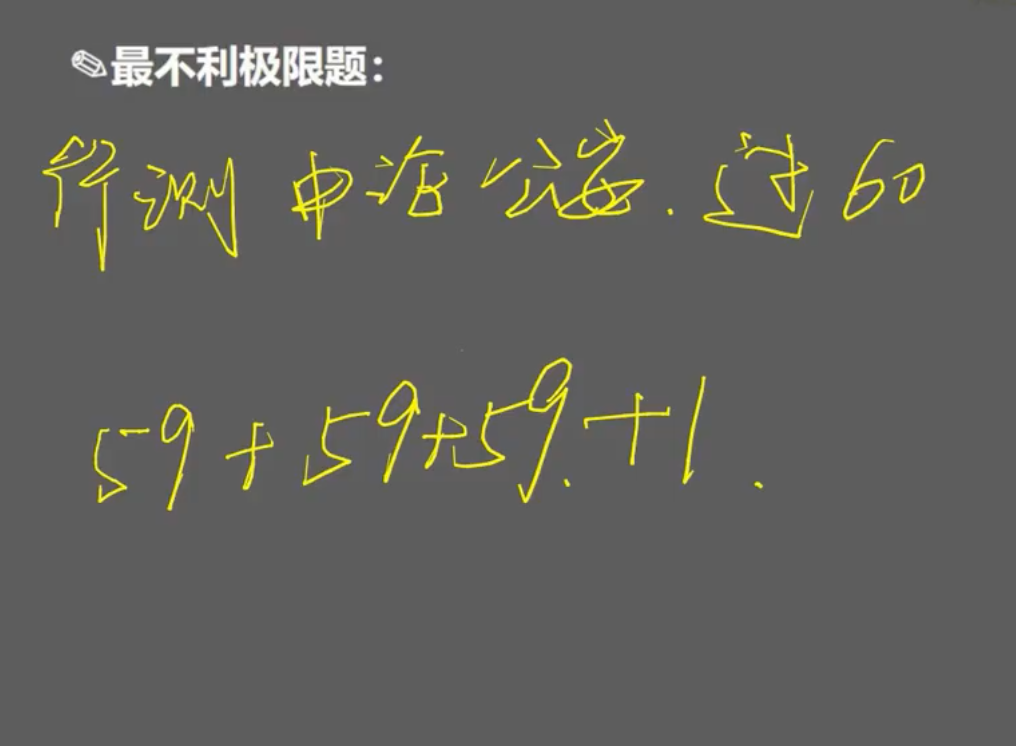 最不利极限题：
行测 申论 公基. 过60
59+59+59.+1.